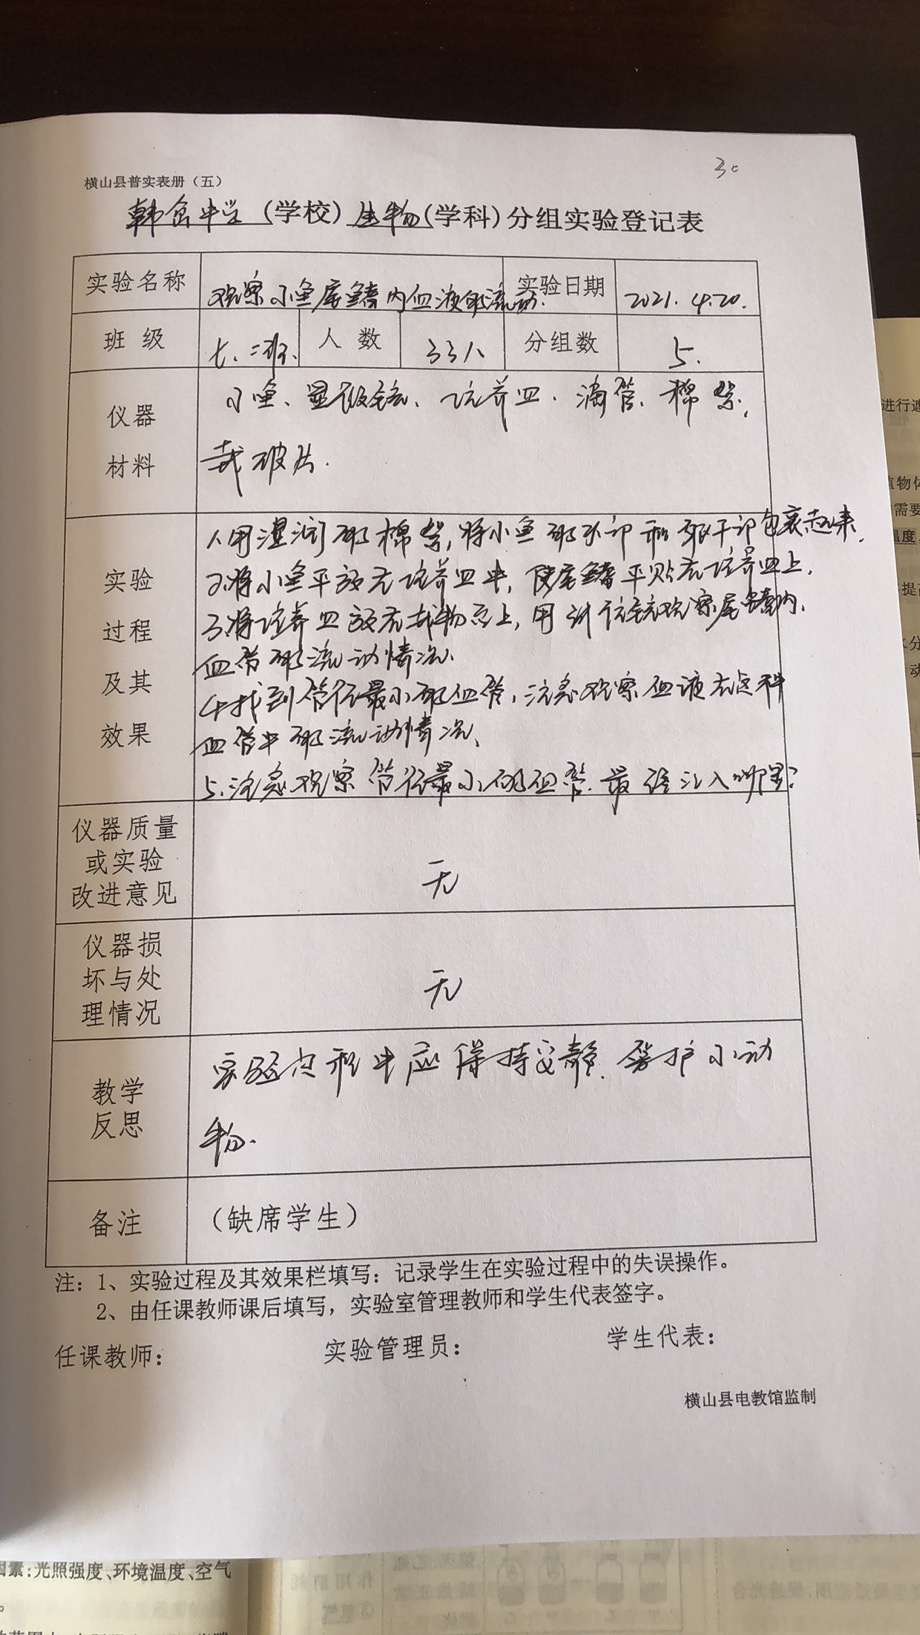 30
横山县普实表册（五）
韩岔中学（学校）生物（学科）分组实验登记表
实验名称 观察小鱼尾鳍内血液的流动. 实验日期 2021.4.20.
班级 七.二班. 人数 33人 分组数 5.
仪器材料
小鱼、显微镜、培养皿、滴管、棉絮,
载玻片.
实验过程及其效果
1.用湿润的棉絮,将小鱼的头部和躯干部包裹起来.
2.将小鱼平放在培养皿中,使尾鳍平贴在培养皿上.
3.将培养皿放在载物台上,用低倍镜观察尾鳍内.
血管的流动情况.
4.找到管径最小的血管,注意观察血液在这种
血管中的流动情况、
5.注意观察管径最小的血管.最终汇入哪里?
仪器质量
或实验
改进意见
无
仪器损
坏与处
理情况
无
教学
反思
实验过程中应保持安静.爱护小动
物.
备注 （缺席学生）
注：1、实验过程及其效果栏填写：记录学生在实验过程中的失误操作。
2、由任课教师课后填写，实验室管理教师和学生代表签字。
任课教师： 实验管理员： 学生代表：
横山县电教馆监制
因素：光照强度、环境温度、空气